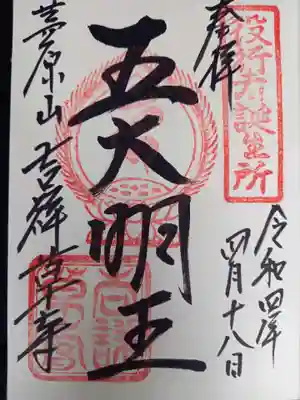 役行者誕生所
奉拝
令和四年
四月十八日
五大明王
茅原山 吉祥草寺